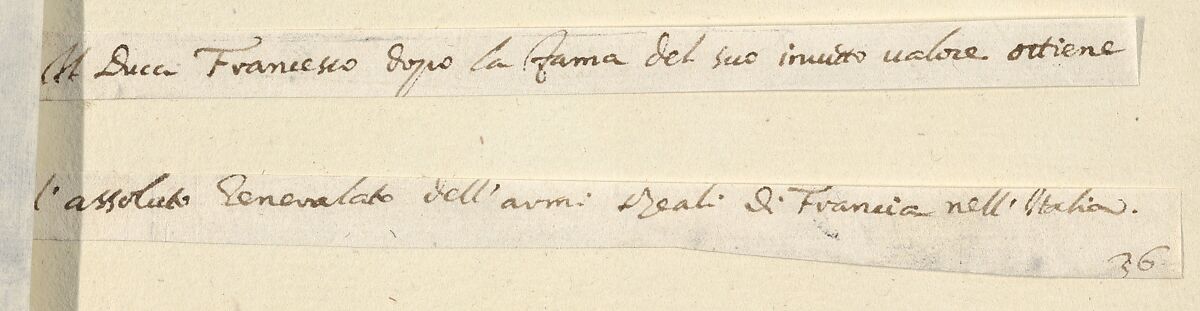 Il Duca Francesco dopo la Fama del suo inuitto ualore ottiene
l'assoluto Generalato dell'armi Reali di Francia nell'Italia.
36